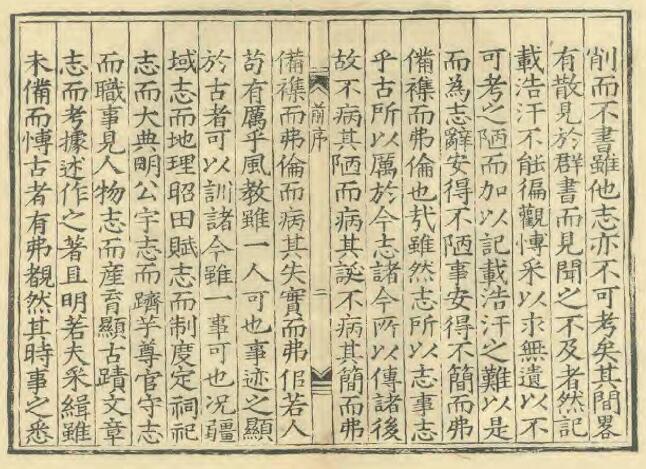 削而不書雖他志亦不可考矣其間畧
有散見於群書而見聞之不及者然記
載浩汗不能徧觀愽采以求無遺以不
可考之陋而加以記載浩汗之難以是
而為志辭安得不陋事安得不簡而弗
備襍而弗倫也㢤雖然志所以志事志
乎古所以厲於今志諸今所以傳諸後
故不病其陋而病其誕不病其簡而弗
前序
二
備襍而弗倫而病其失實而弗信若人
苟有厲乎風教雖一人可也事迹之顯
於古者可以訓諸今雖一事可也况疆
域志而地理昭田賦志而制度定祠祀
志而大典明公宇志而躋尊官守志
而職事見人物志而産育顯古蹟文章
志而考據述作之著且明若夫采緝雖
未備而愽古者有弗覩然其時事之悉